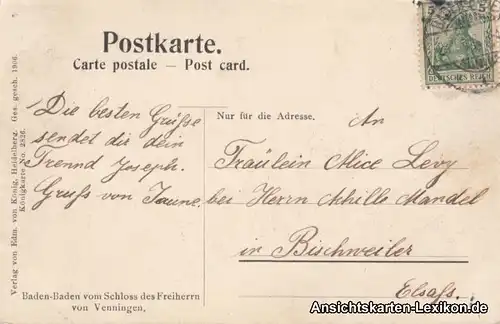 Postkarte.
Carte postale — Post card.
DEUTSCHES REICH
Verlag von Edm. von König, Heidelberg. Ges. gesch. 1906.
Königkarte No. 2826.
Die besten Grüsse
sendet dir dein
Freund Joseph.
Gruss von
Nur für die Adresse.
An
Fräulein Alice Levy
bei Herrn Achille Mandel
in Bischweiler
Elsass.
Baden-Baden vom Schloss des Freiherrn
von Venningen.
Ansichtskarten-Lexikon.de